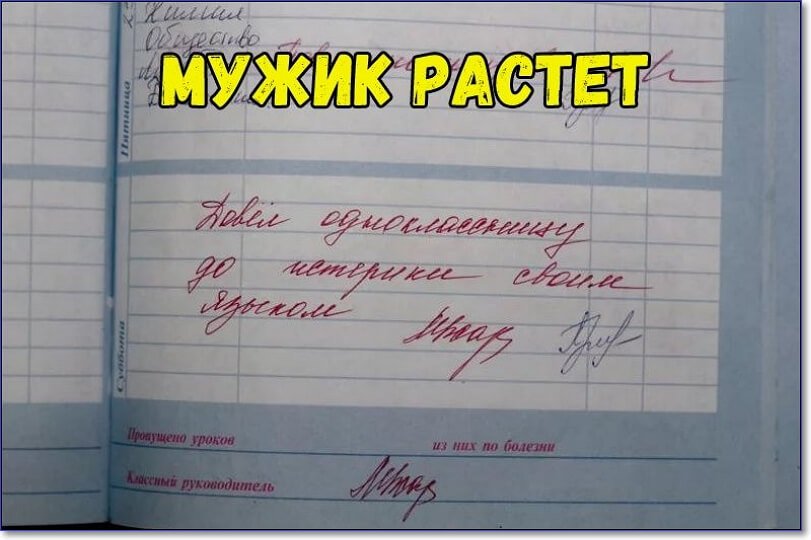 Химия
Общество
МУЖИК РАСТЕТ
Пятница
Довёл одноклассницу
до истерики своим
языком
Суббота
Пропущено уроков
из них по болезни
Классный руководитель